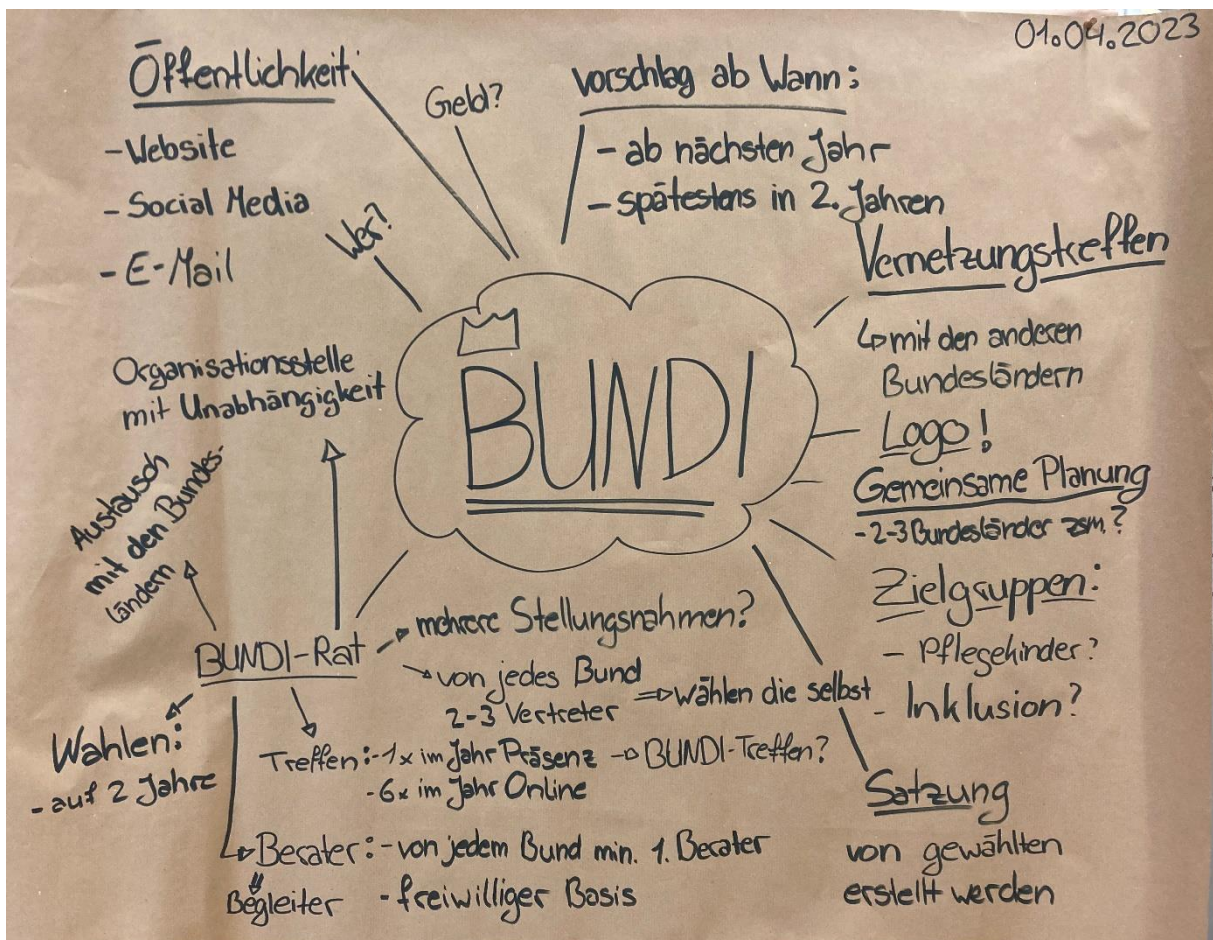 01.04.2023
Öffentlichkeit:
- Website
- Social Media
- E-Mail
Geld?
Wer?
vorschlag ab Wann:
- ab nächsten Jahr
- spätestens in 2. Jahren
Vernetzungstreffen
↳ mit den anderen
Bundesländern
Logo!
Gemeinsame Planung
- 2-3 Bundesländer zsm.?
Zielgruppen:
- Pflegekinder?
- Inklusion?
BUNDI
Organisationsstelle
mit Unabhängigkeit
Austausch
mit den Bundes-
ländern
BUNDI-Rat
→ mehrere Stellungsnahmen?
→ von jedes Bund
2-3 Vertreter
⇒ wählen die selbst
Wahlen:
- auf 2 Jahre
Treffen: - 1x im Jahr Präsenz → BUNDI-Treffen?
- 6x im Jahr Online
Berater: - von jedem Bund min. 1. Berater
Begleiter - freiwilliger Basis
Satzung
von gewählten
erstellt werden